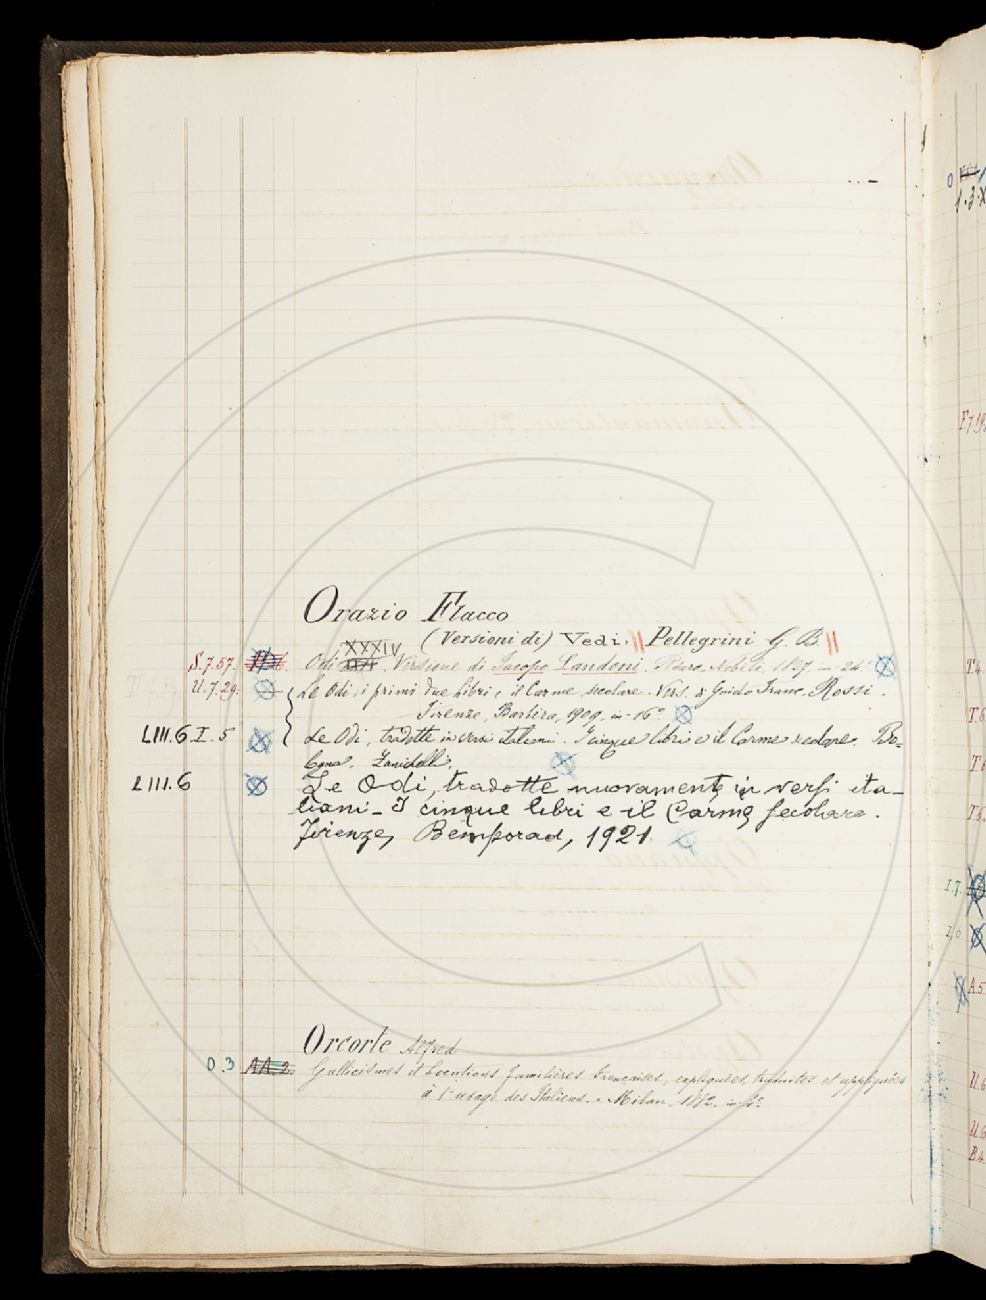 Orazio Flacco
(Versioni di) Vedi. || Pellegrini G. B. ||
S.7.57. Odi XXXIV. Versione di Jacopo Landoni. in 24°
U.7.29. Le Odi, i primi due libri e il Carme secolare. Vers. di Guido Franc. Rossi.
Firenze, Barbèra, 1909, in-16°
LIII.6 I.5 Le Odi, tradotte in versi italiani. I cinque libri e il Carme secolare. Bo-
logna, Zanichelli.
LIII.6 Le Odi, tradotte nuovamente in versi ita-
liani - I cinque libri e il Carme secolare.
Firenze, Bemporad, 1921.
Orcorte Alfred
O.3 AA.2. Gallicismes et Locutions familières Françaises, expliquées, traduites et appliquées
à l'usage des Italiens. Milan,
F.7.19
I.7.
A.5
U.6
B.4